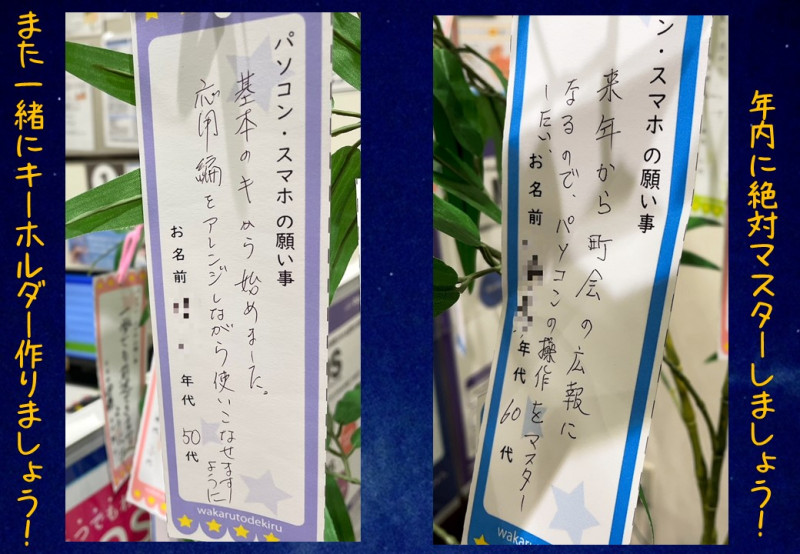 年内に絶対マスターしましょう!
ン・スマホ の願い事
来年から町会の広報に
なるので、パソコンの操作をマスター
したい、
お名前 年代 60代
waka
パソコン・スマホ の願い事
基本のキから始めました。
応用編をアレンジしながら使いこなせます
ように
お名前 年代 50代
wakarutodekiru
つでも
また一緒にキーホルダー作りましょう!